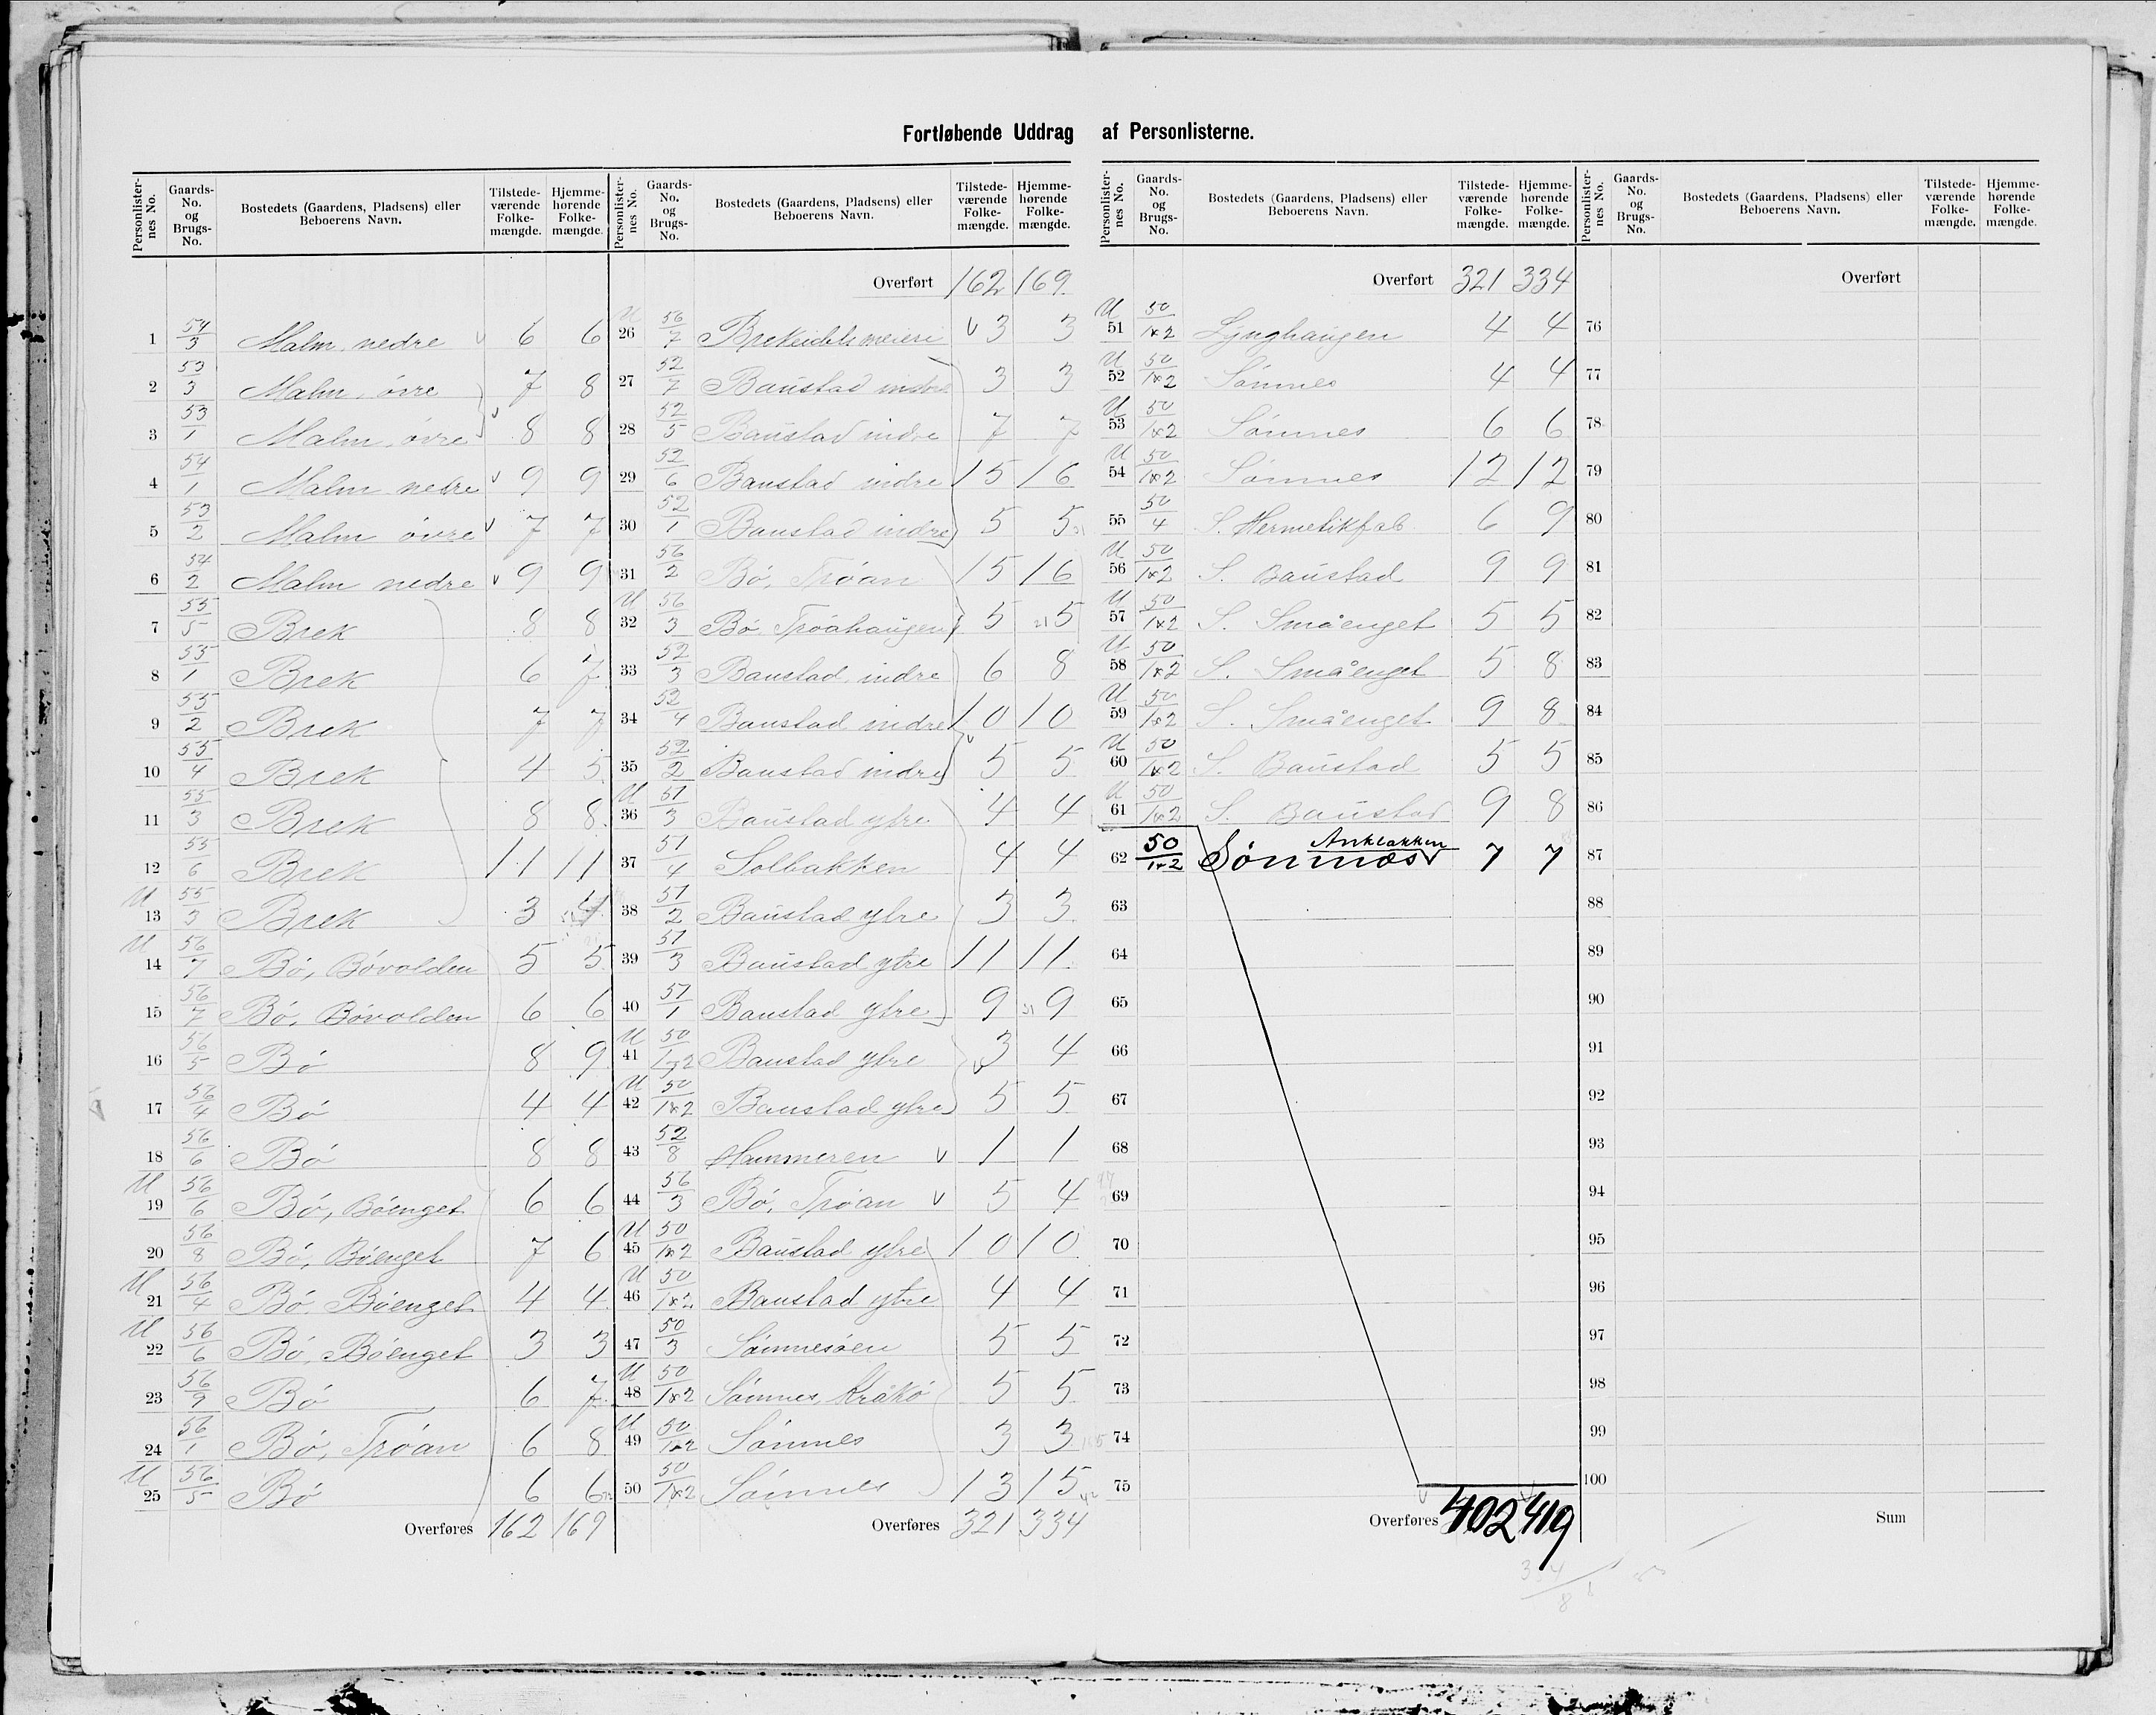 Fortløbende Uddrag af Personlisterne.
Personlister-nes No. Gaards-No. og Brugs-No. Bostedets (Gaardens, Pladsens) eller Beboerens Navn. Tilstede-værende Folke-mængde. Hjemme-hørende Folke-mængde.
1 54/3 Malm nedre v 6 6
2 53/3 Malm, övre 7 8
3 53/1 Malm, övre v 8 8
4 54/1 Malm nedre v 9 9
5 53/2 Malm övre v 7 7
6 54/2 Malm nedre v 9 9
7 55/5 Brek 8 8
8 55/1 Brek 6 7
9 55/2 Brek 7 7
10 55/4 Brek 4 5
11 55/3 Brek 8 8
12 55/6 Brek 11 11
U 13 55/3 Brek 3 4
U 14 56/7 Bö, Bövolden 5 5
15 56/7 Bö, Bövolden 6 6
16 56/5 Bö 8 9
17 56/4 Bö 4 4
18 56/6 Bö 8 8
U 19 56/6 Bö, Böenget 6 6
20 56/8 Bö, Böenget 7 6
U 21 56/4 Bö, Böenget 4 4
U 22 56/6 Bö, Böenget 3 3
23 56/9 Bö 6 7
24 56/1 Bö, Tröan 6 8
U 25 56/5 Bö 6 6
Overføres 162 169
Personlister-nes No. Gaards-No. og Brugs-No. Bostedets (Gaardens, Pladsens) eller Beboerens Navn. Tilstede-værende Folke-mængde. Hjemme-hørende Folke-mængde.
Overført 162 169
U 26 56/7 Brekeidets meieri v 3 3
27 52/7 Baustad indre 3 3
28 52/5 Baustad indre 7 7
29 52/6 Baustad indre 15 16
30 52/1 Baustad indre 5 5
31 56/2 Bö, Tröan 15 16
U 32 56/3 Bö Tröahaugen 5 5
33 52/3 Baustad indre 6 8
34 52/4 Baustad indre 10 10
35 52/2 Baustad indre 5 5
U 36 51/3 Baustad ytre 4 4
37 51/4 Solbakken 4 4
38 51/2 Baustad ytre 3 3
39 51/3 Baustad ytre 11 11
40 51/1 Baustad ytre 9 9
U 41 50/1+2 Baustad ytre 3 4
U 42 50/1x2 Baustad ytre 5 5
43 52/8 Hammeren v 1 1
44 56/3 Bö, Tröan v 5 4
U 45 50/1x2 Baustad ytre 10 10
U 46 50/1x2 Baustad ytre 4 4
47 50/3 Sömnesöen 5 5
U 48 50/1x2 Sömnes, Kråkö 5 5
U 49 50/1x2 Sömnes 3 3
50 50/1x2 Sömnes 13 15
Overføres 321 334
Personlister-nes No. Gaards-No. og Brugs-No. Bostedets (Gaardens, Pladsens) eller Beboerens Navn. Tilstede-værende Folke-mængde. Hjemme-hørende Folke-mængde.
Overført 321 334
U 51 50/1x2 Lynghaugen 4 4
U 52 50/1x2 Sömnes 4 4
U 53 50/1x2 Sömnes 6 6
U 54 50/1x2 Sömnes 12 12
55 50/4 S. Hermetikfab 6 9
U 56 50/1x2 S. Baustad 9 9
U 57 50/1x2 S. Småenget 5 5
U 58 50/1x2 S. Småenget 5 8
U 59 50/1x2 S. Småenget 9 8
U 60 50/1x2 S. Baustad 5 5
U 61 50/1x2 S. Baustad 9 8
62 50/1+2 Sömnæs 7 7
63
64
65
66
67
68
69
70
71
72
73
74
75
Overføres 402 419
Personlister-nes No. Gaards-No. og Brugs-No. Bostedets (Gaardens, Pladsens) eller Beboerens Navn. Tilstede-værende Folke-mængde. Hjemme-hørende Folke-mængde.
Overført
76
77
78
79
80
81
82
83
84
85
86
87
88
89
90
91
92
93
94
95
96
97
98
99
100
Sum